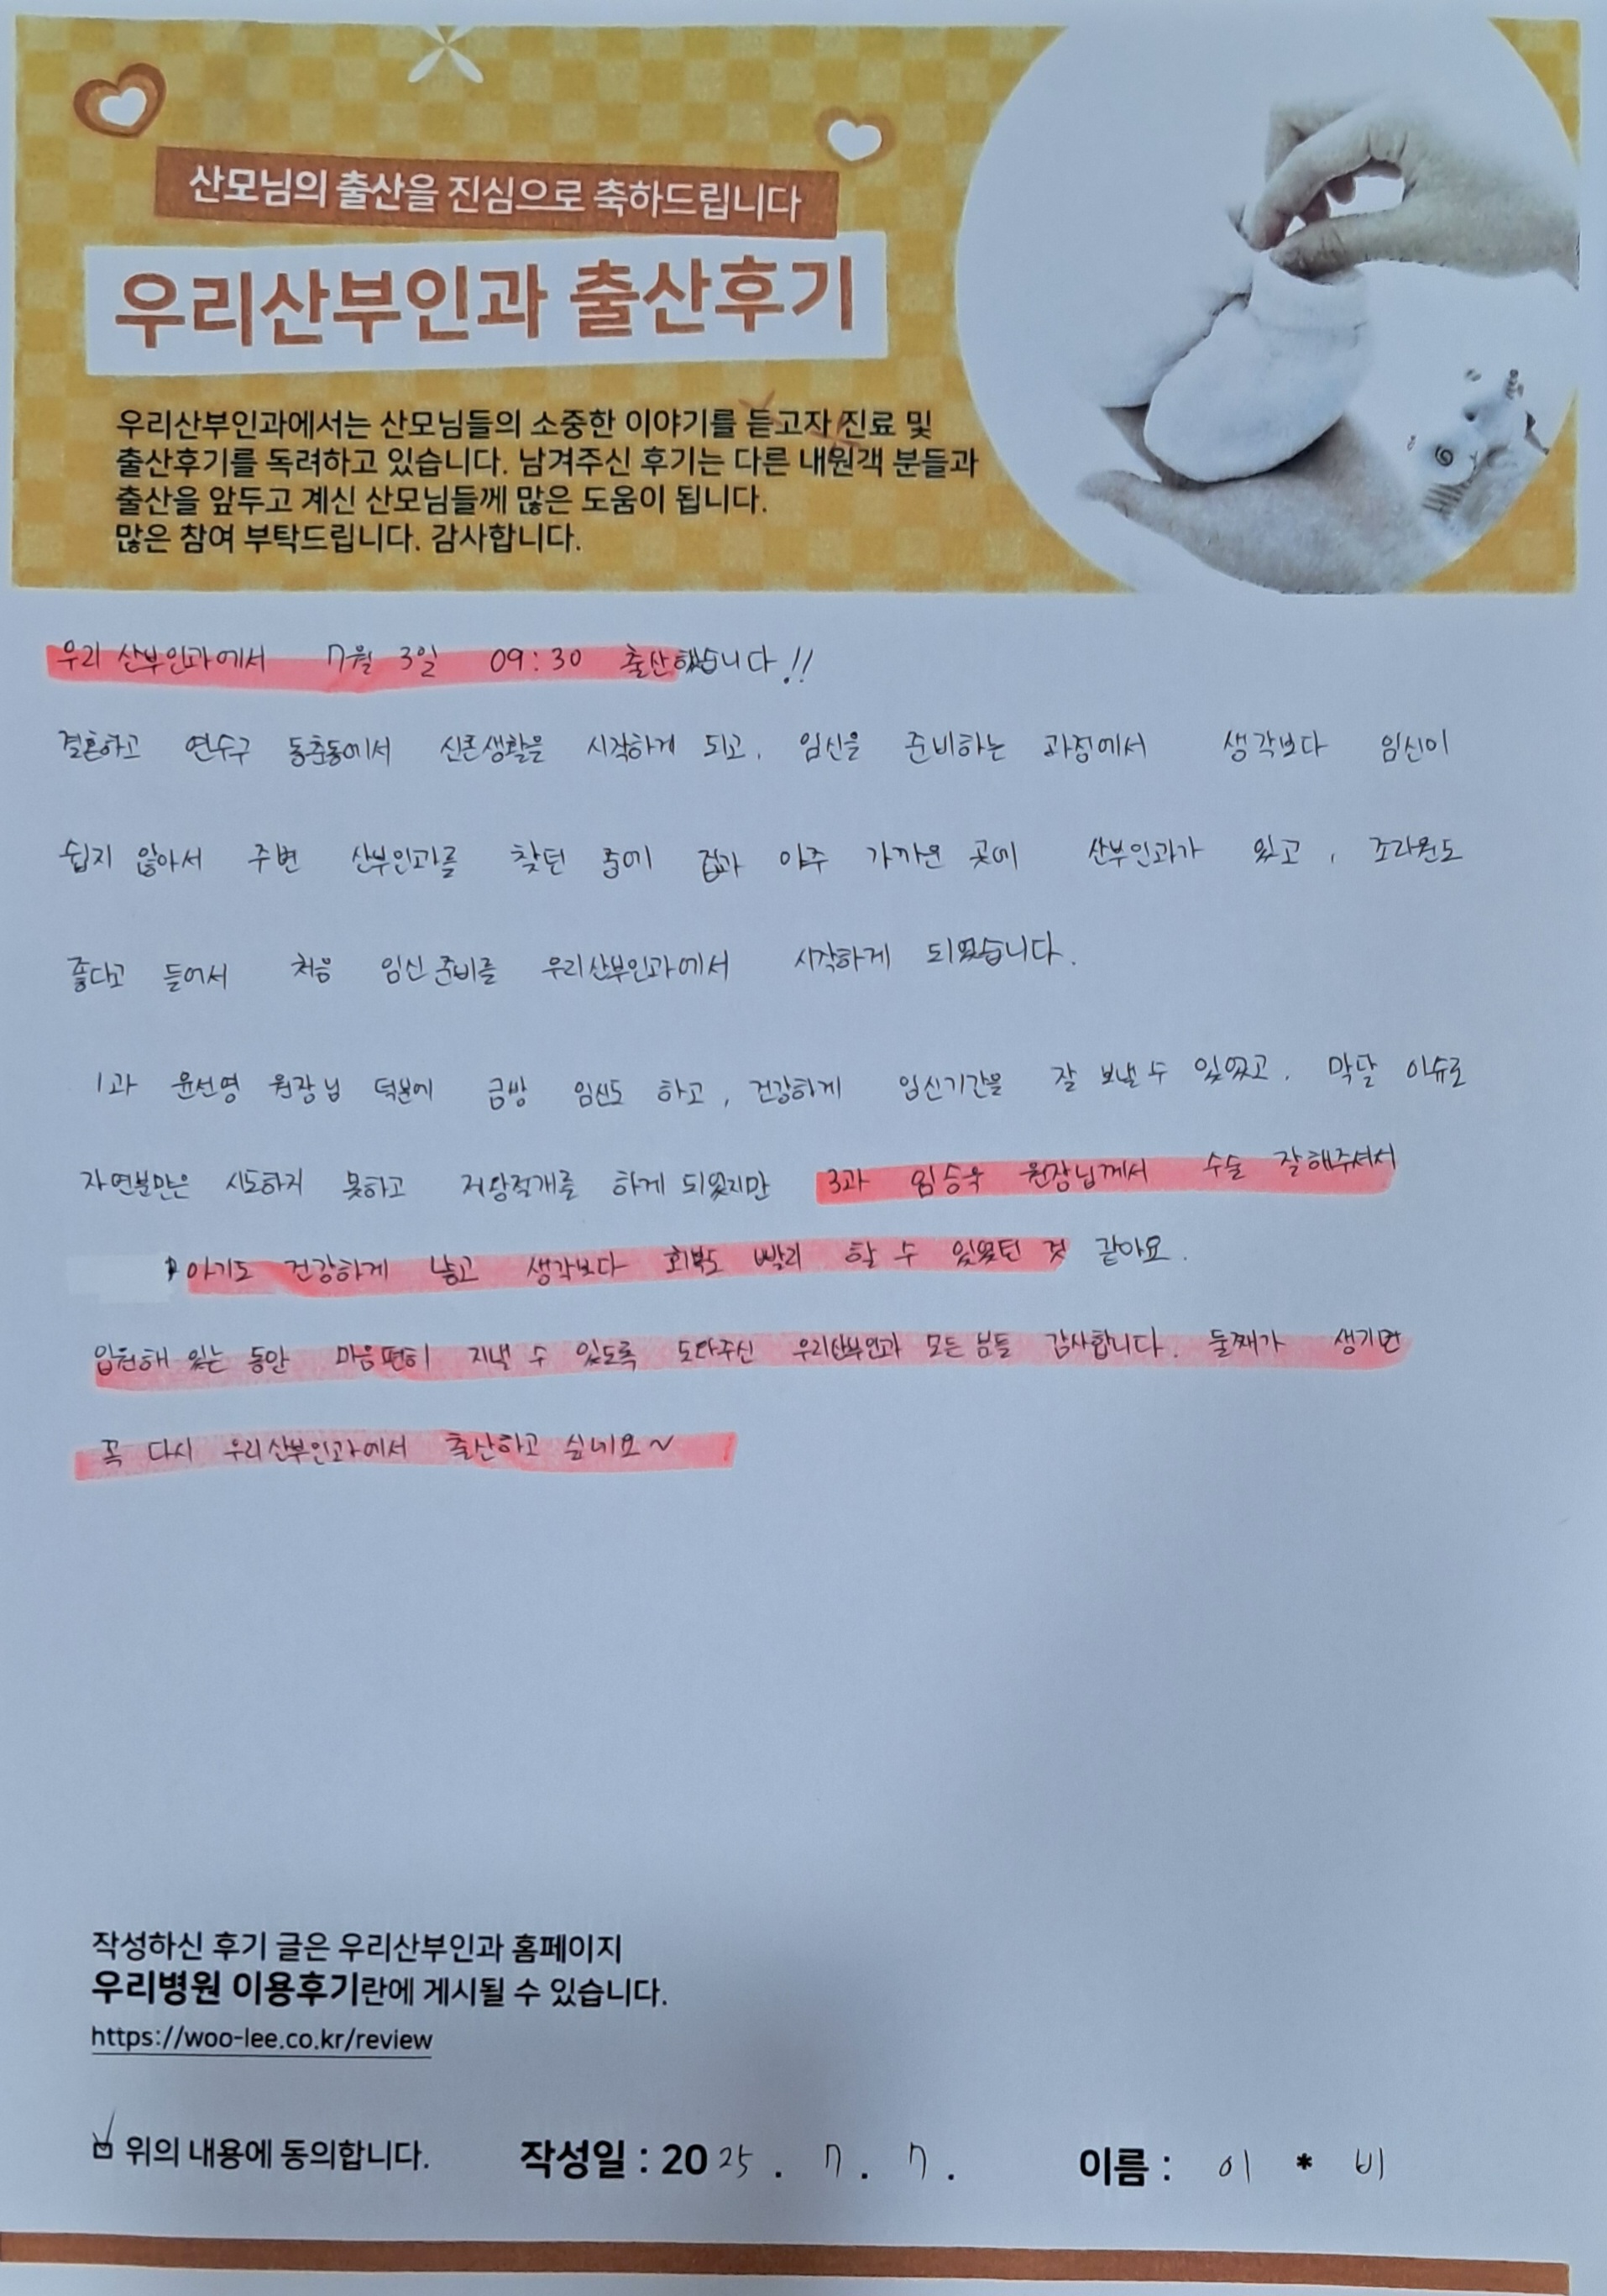 산모님의 출산을 진심으로 축하드립니다
우리산부인과 출산후기
우리산부인과에서는 산모님들의 소중한 이야기를 듣고자 진료 및
출산후기를 독려하고 있습니다. 남겨주신 후기는 다른 내원객 분들과
출산을 앞두고 계신 산모님들께 많은 도움이 됩니다.
많은 참여 부탁드립니다. 감사합니다.
우리 산부인과에서 7월 3일 09:30 출산했습니다!!
결혼하고 연수구 동춘동에서 신혼생활을 시작하게 되고, 임신을 준비하는 과정에서 생각보다 임신이
쉽지 않아서 주변 산부인과를 찾던 중에 집과 아주 가까운 곳에 산부인과가 있고, 조리원도
좋다고 들어서 처음 임신준비를 우리산부인과에서 시작하게 되었습니다.
1과 윤선영 원장님 덕분에 금방 임신도 하고, 건강하게 임신기간을 잘 보낼 수 있었고, 막달 이슈로
자연분만은 시도하지 못하고 제왕절개를 하게 되었지만 3과 임승욱 원장님께서 수술 잘해주셔서
아기도 건강하게 낳고 생각보다 회복도 빨리 할 수 있었던 것 같아요.
입원해 있는 동안 마음편히 지낼 수 있도록 도와주신 우리산부인과 모든 분들 감사합니다. 둘째가 생기면
꼭 다시 우리산부인과에서 출산하고 싶네요~
작성하신 후기 글은 우리산부인과 홈페이지
우리병원 이용후기란에 게시될 수 있습니다.
https://woo-lee.co.kr/review
위의 내용에 동의합니다. 작성일 : 2025. 7. 7. 이름 : 이 * 비